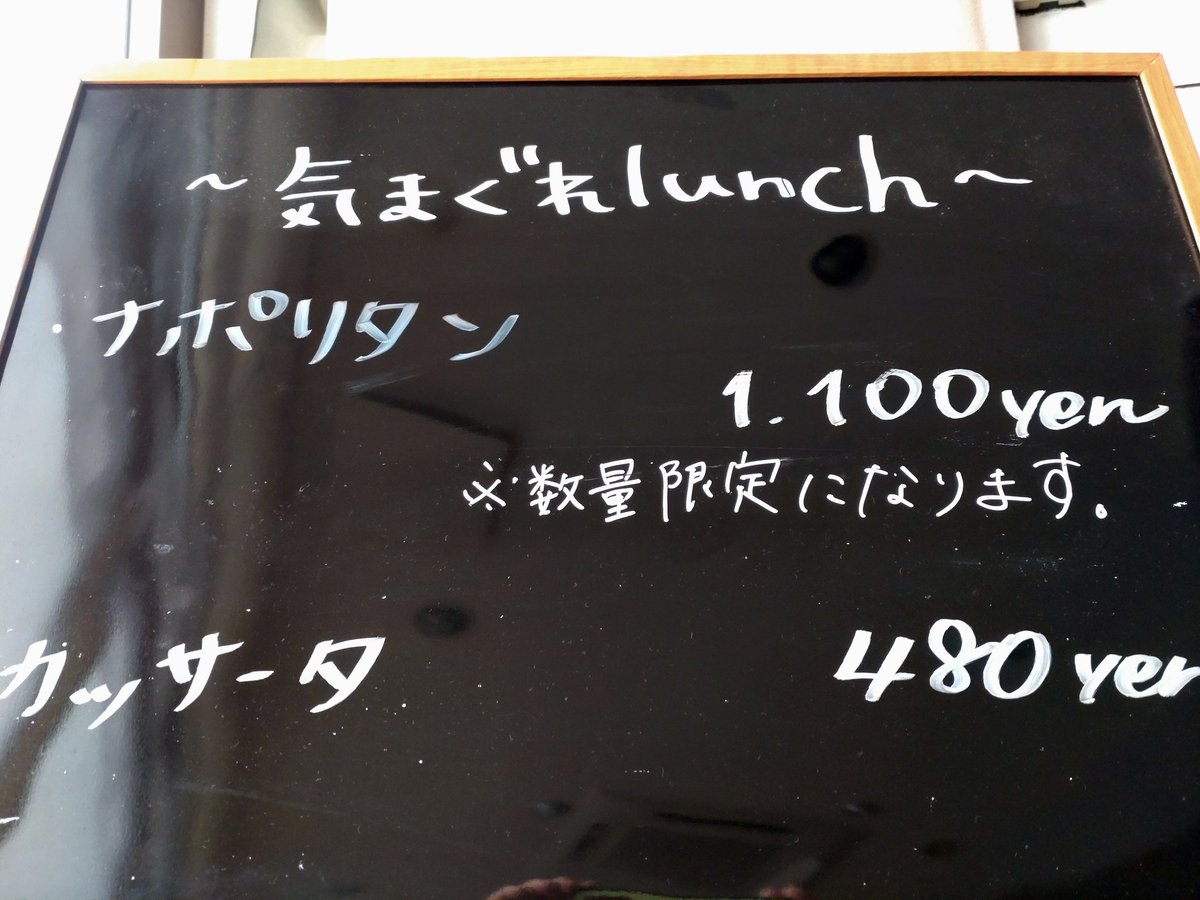 ～気まぐれlunch～
・ナポリタン
1.100yen
※数量限定になります.
カッサータ 480yen